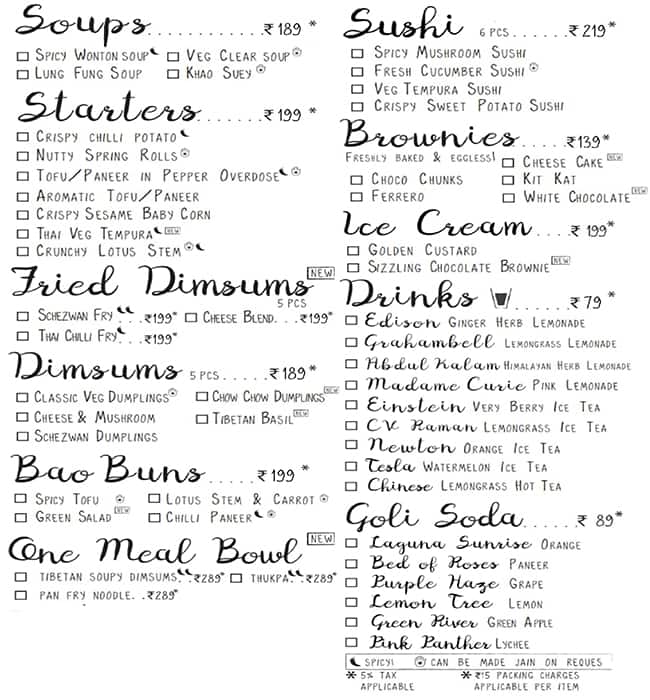 Soups............₹ 189 *
SPICY WONTON SOUP
VEG CLEAR SOUP
LUNG FUNG SOUP
KHAO SUEY
Starters.......₹ 199 *
CRISPY CHILLI POTATO
NUTTY SPRING ROLLS
TOFU/PANEER IN PEPPER OVERDOSE
AROMATIC TOFU/PANEER
CRISPY SESAME BABY CORN
THAI VEG TEMPURA NEW
CRUNCHY LOTUS STEM
Fried Dimsums NEW
5 PCS
SCHEZWAN FRY ...₹199*
CHEESE BLEND...₹199*
THAI CHILLI FRY ..₹199*
Dimsums 5 PCS......₹189*
CLASSIC VEG DUMPLINGS
CHOW CHOW DUMPLINGS NEW
CHEESE & MUSHROOM
TIBETAN BASIL NEW
SCHEZWAN DUMPLINGS
Bao Buns......₹ 199 *
SPICY TOFU
LOTUS STEM & CARROT
GREEN SALAD NEW
CHILLI PANEER
One Meal Bowl NEW
TIBETAN SOUPY DIMSUMS..₹289*
THUKPA..₹289*
PAN FRY NOODLE..₹289*
Sushi 6 PCS.......₹ 219*
SPICY MUSHROOM SUSHI
FRESH CUCUMBER SUSHI
VEG TEMPURA SUSHI
CRISPY SWEET POTATO SUSHI
Brownies.....₹139*
FRESHLY BAKED & EGGLESS!
CHEESE CAKE NEW
CHOCO CHUNKS
KIT KAT
FERRERO
WHITE CHOCOLATE NEW
Ice Cream....₹ 199*
GOLDEN CUSTARD
SIZZLING CHOCOLATE BROWNIE NEW
Drinks ......₹ 79 *
Edison GINGER HERB LEMONADE
Grahambell LEMONGRASS LEMONADE
Abdul Kalam HIMALAYAN HERB LEMONADE
Madame Curie PINK LEMONADE
Einstein VERY BERRY ICE TEA
CV Raman LEMONGRASS ICE TEA
Newton ORANGE ICE TEA
Tesla WATERMELON ICE TEA
Chinese LEMONGRASS HOT TEA
Goli Soda......₹ 89*
Laguna Sunrise ORANGE
Bed of Roses PANEER
Purple Haze GRAPE
Lemon Tree LEMON
Green River GREEN APPLE
Pink Panther LYCHEE
SPICY! CAN BE MADE JAIN ON REQUES
* 5% TAX APPLICABLE
* ₹15 PACKING CHARGES APPLICABLE PER ITEM